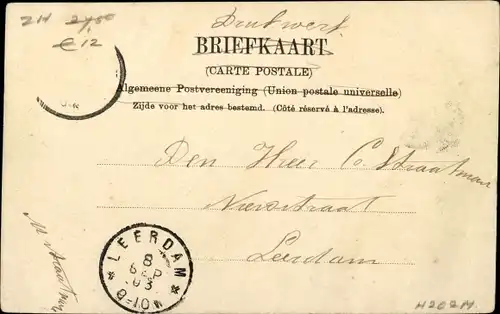 Drukwerk
ZH 27,50
€ 12
BRIEFKAART
(CARTE POSTALE)
Algemeene Postvereeniging (Union postale universelle)
Zijde voor het adres bestemd. (Côté réservé à l'adresse).
Den Heer C. Straatman
Nieuwstraat
Leerdam
M Straatman
LEERDAM
8
SEP
03
9-10V
H202M